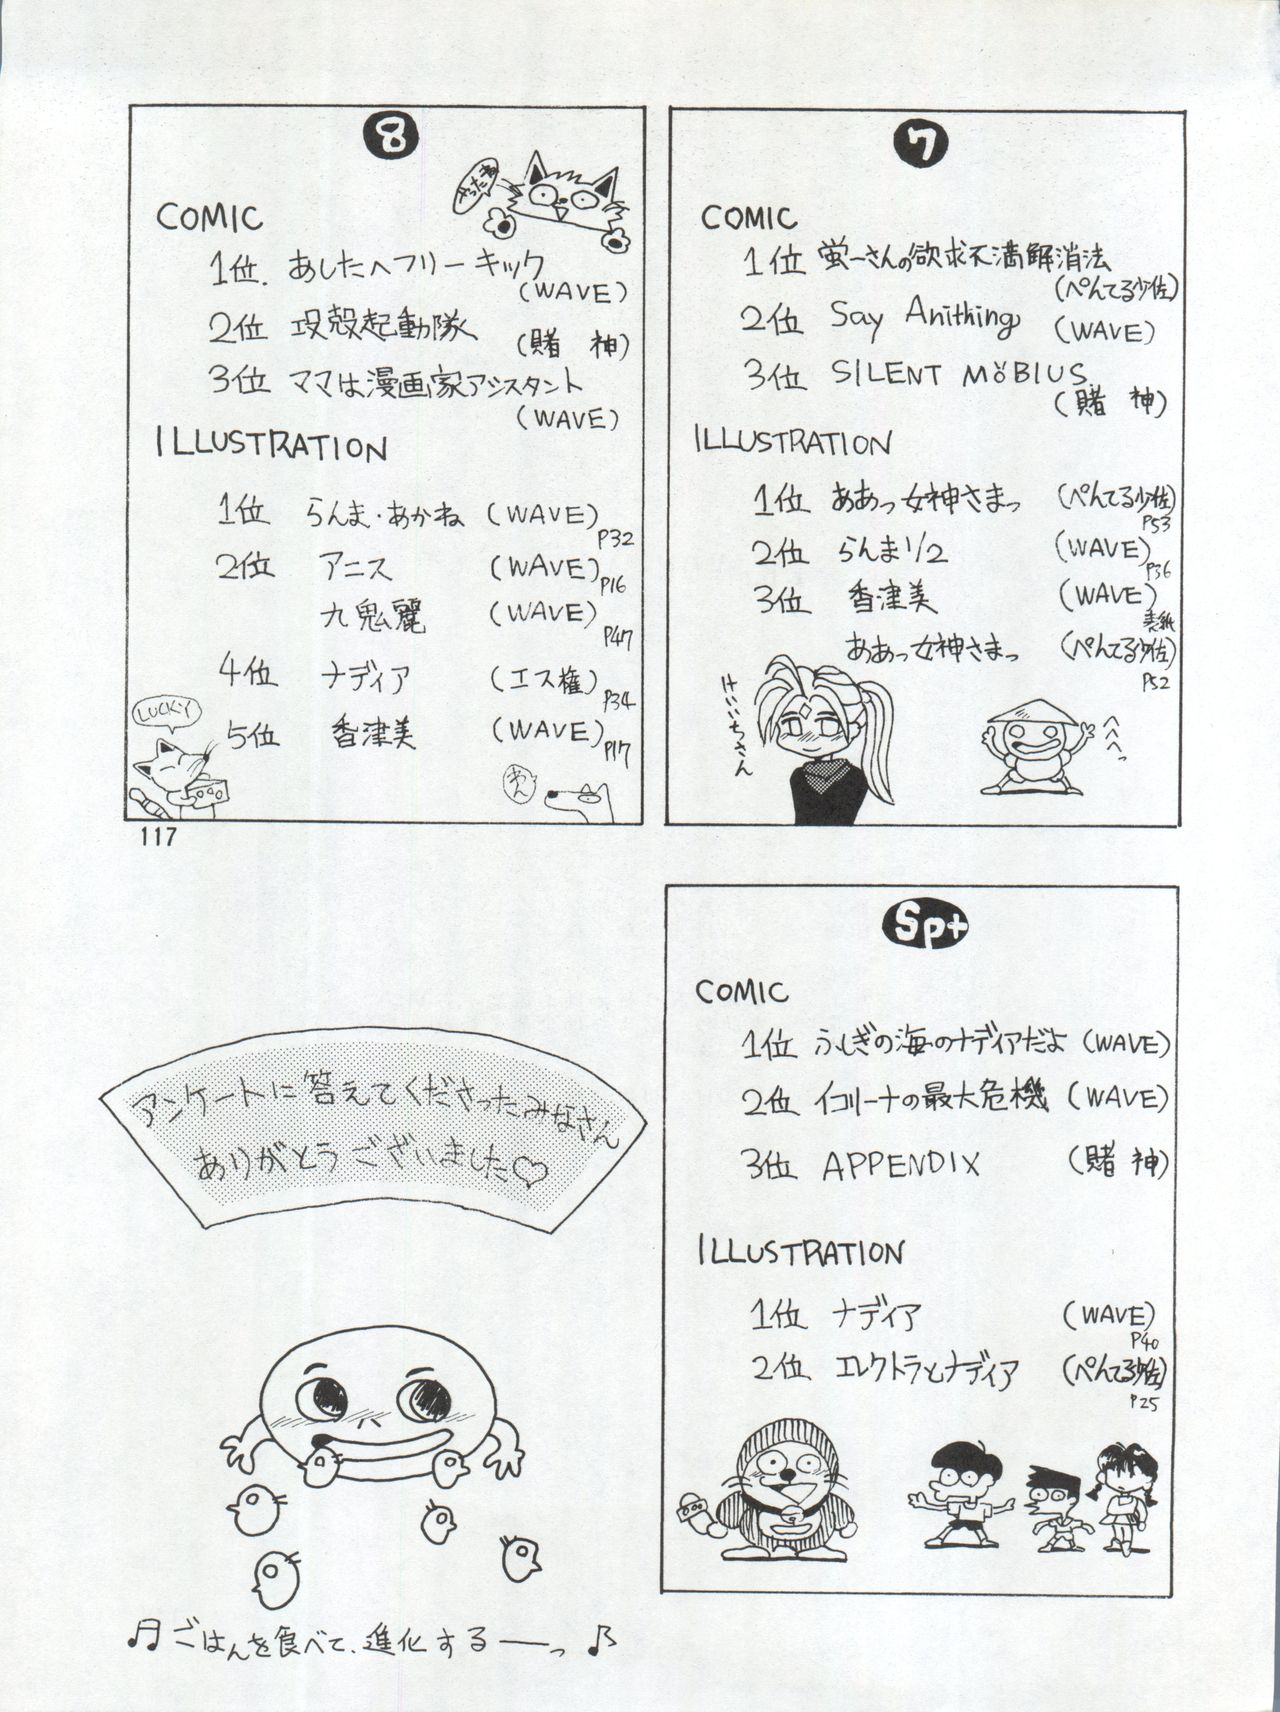 8
やったね
COMIC
1位. あしたへフリーキック
(WAVE)
2位 攻殻起動隊
(賭 神)
3位 ママは漫画家アシスタント
(WAVE)
ILLUSTRATION
1位 らんま・あかね (WAVE) P32
2位 アニス (WAVE) P16
九鬼麗 (WAVE) P47
4位 ナディア (エス権) P34
5位 香津美 (WAVE) P17
LUCKY
わん
117
7
COMIC
1位 蛍一さんの欲求不満解消法
(ぺんてる少佐)
2位 Say Anithing (WAVE)
3位 SILENT MÖBIUS
(賭 神)
ILLUSTRATION
1位 ああっ女神さまっ (ぺんてる少佐) P53
2位 らんま1/2 (WAVE) P36
3位 香津美 (WAVE) 表紙
ああっ女神さまっ (ぺんてる少佐) P52
けいいちさん
へへへっ
Sp+
COMIC
1位 ふしぎの海のナディアだよ (WAVE)
2位 イコリーナの最大危機 (WAVE)
3位 APPENDIX (賭 神)
ILLUSTRATION
1位 ナディア (WAVE) P40
2位 エレクトラとナディア (ぺんてる少佐) P25
アンケートに答えてくださったみなさん
ありがとうございました♡
♫ ごはんを食べて、進化するーっ ♪